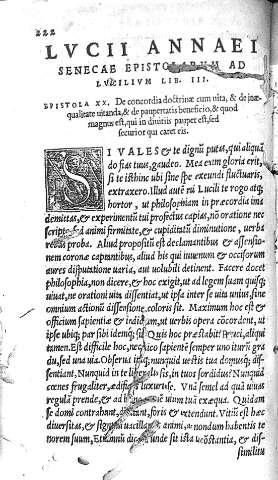 222
LVCII ANNAEI
SENECAE EPISTOLARVM AD
LVCILIVM LIB. III.
EPISTOLA XX. De concordia doctrinæ cum uita, & de inæ-
qualitate uitanda, & de paupertatis beneficio, & quod
magnus est, qui in diuitiis pauper est, sed
securior qui caret eis.
SI VALES & te dignū putas, qui aliquā
do fias tuus, gaudeo. Mea enim gloria erit,
si te isthinc ubi sine spe exeundi fluctuaris,
extraxero. Illud autē mi Lucili te rogo atq;
hortor, ut philosophiam in præcordia ima
demittas, & experimentū tui profectus capias, nō oratione nec
scripto, sed animi firmitate, & cupiditatū diminutione, uerba
rebus proba. Aliud propositū est declamantibus & assensio-
nem coronæ captantibus, aliud his qui iuuenum & ociosorum
aures disputatione uaria, aut uolubili detinent. Facere docet
philosophia, non dicere, & hoc exigit, ut ad legem suam quisq;
uiuat, ne orationi uita dissentiat, ut ipsa inter se uita unius, sine
omnium actionū dissensione coloris sit. Maximum hoc est &
officium sapientiæ & indicium, ut uerbis opera cōcordent, ut
ipse ubiq; par sibi idemq; sit. Quis hoc præstabit? pauci, aliqui
tamen. Est difficile hoc, nec dico sapientē semper uno iturū gra-
du, sed una uia. Obserua itaq;, nunquid uestis tua domusq; dis-
sentiant. Nunquid in te liberalis sis, in tuos sordidus? Nunquid
cœnes frugaliter, ædifices luxuriose. Vna semel ad quā uiuas
regulā prende, & ad hanc omnem uitam tuā exæqua. Quidam
se domi contrahunt, dilatant foris & extendunt. Vitiū est hæc
diuersitas, & signū uacillantis animi, ac nondum habentis te
norem suum. Etiamnū dicam unde sit ista incōstantia, & dis-
similitu